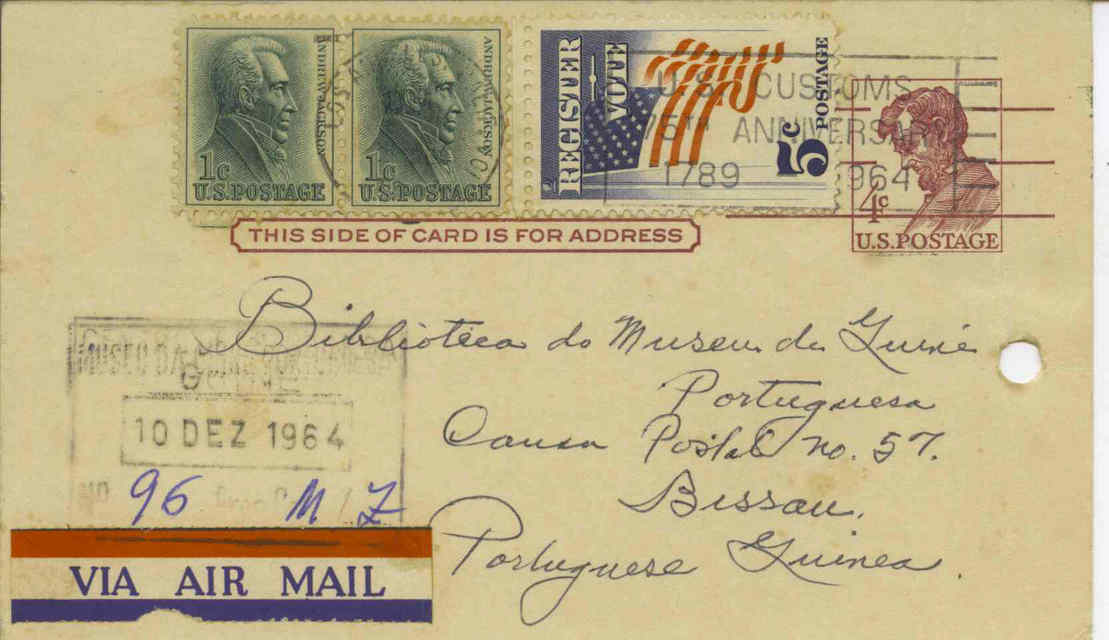 ANDREW JACKSON
1c
U.S. POSTAGE
ANDREW JACKSON
1c
U.S. POSTAGE
REGISTER
VOTE
5c
POSTAGE
U.S. CUSTOMS
75TH ANNIVERSARY
1789 1964
4c
U.S. POSTAGE
THIS SIDE OF CARD IS FOR ADDRESS
Biblioteca do Museu da Guiné
Portuguesa
Causa Postal no. 57.
Bissau.
Portuguese Guinea.
MUSEU DA
10 DEZ 1964
NO 96
VIA AIR MAIL